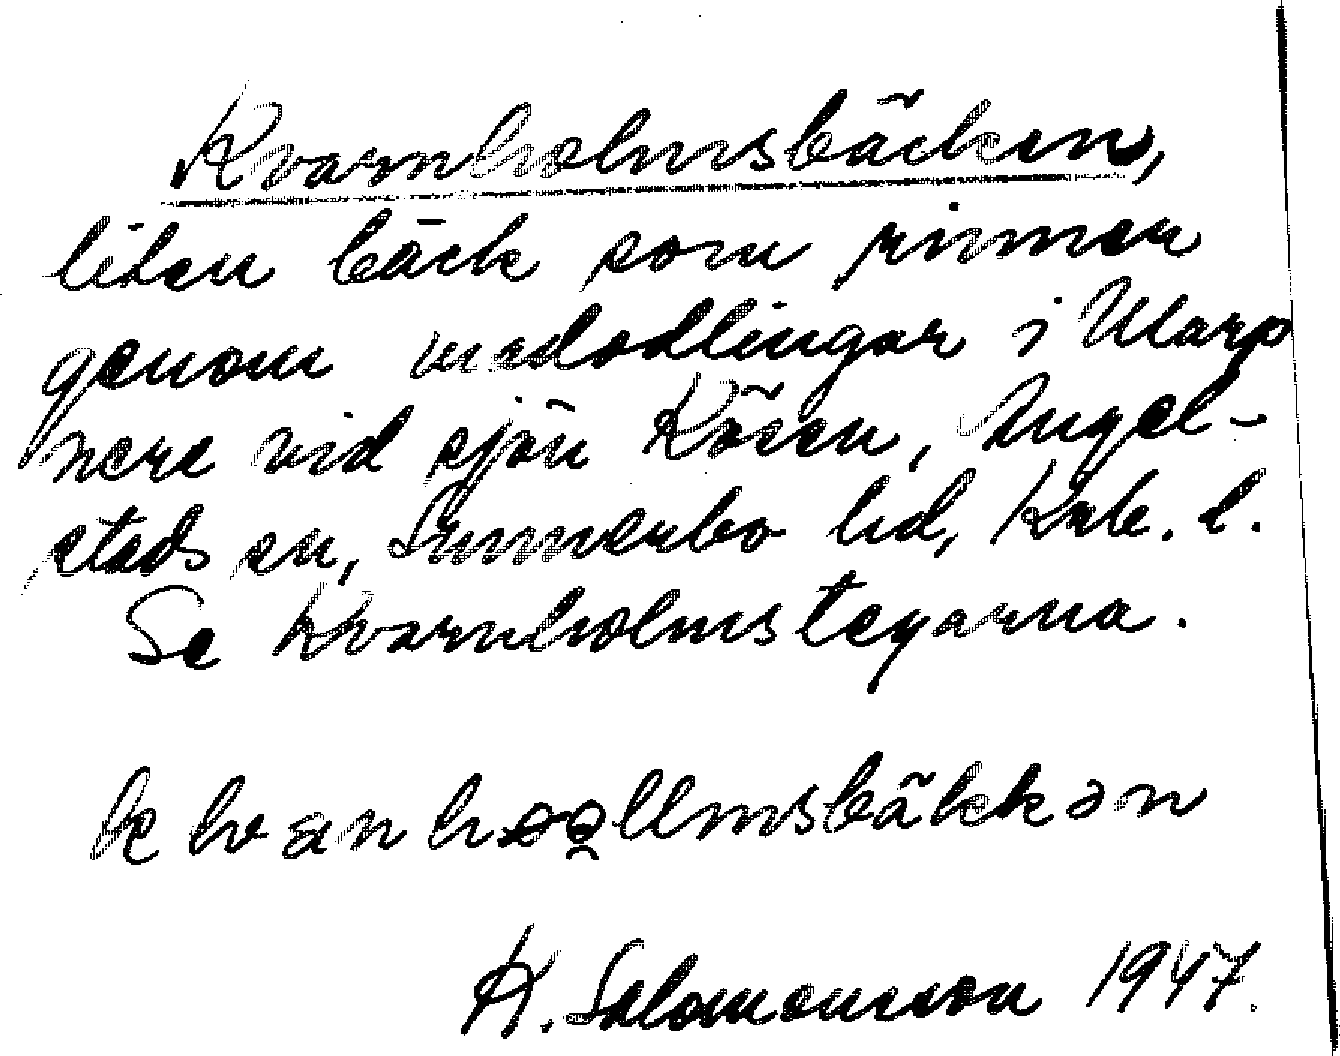 Kvarnholmsbäcken,
liten bäck som rinner
genom madodlingar i Ularp
nere vid sjön Kösen, Angel-
stads sn, Sunnerbo hd, Krb. l.
Se Kvarnholmstegarna.
kvanhoollmsbäkkən
K. Salomonsson 1947.